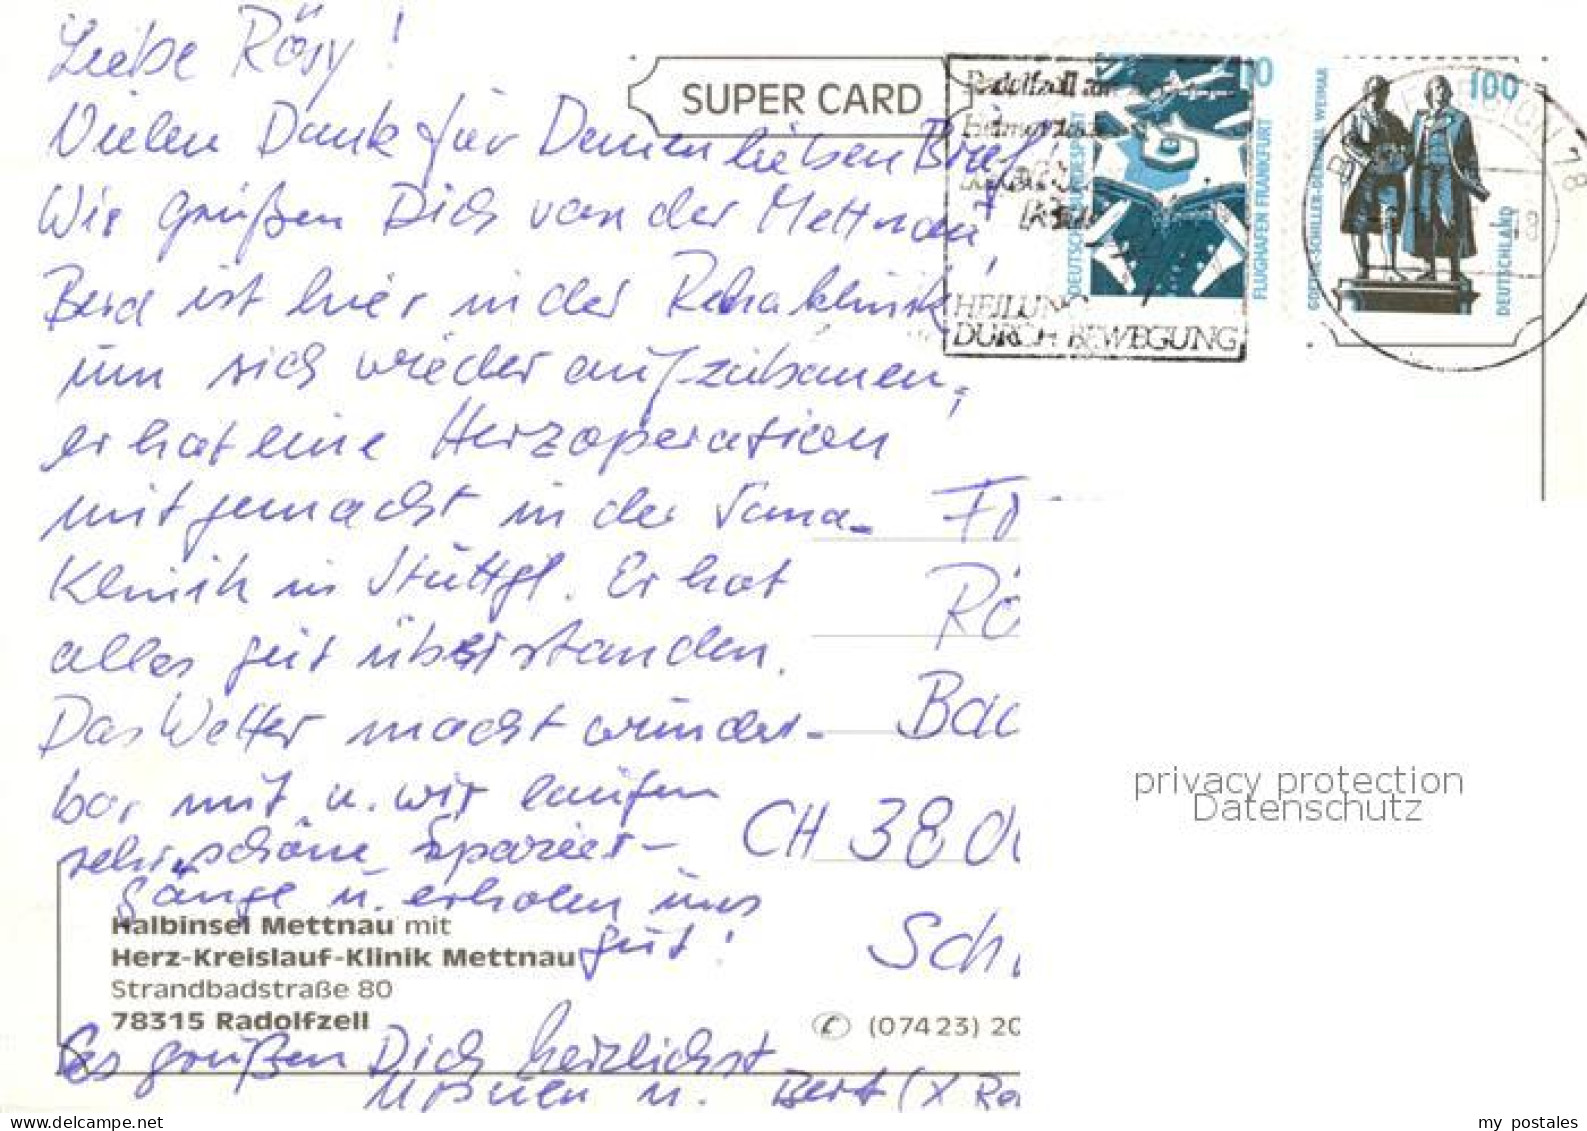 Liebe Rösy!
SUPER CARD
Vielen Dank für Deinen lieben Brief!
Wir grüßen Dich von der Mettnau!
Bernd ist hier in der Rehaklinik
um sich wieder aufzubauen,
er hat eine Herzoperation
mitgemacht in der Sana-
Klinik in Stuttgt. Er hat
alles gut überstanden.
Das Wetter macht wunder-
bar mit u. wir laufen
sehr schöne Spazier-
gänge u. erholen uns
gut!
Es grüßen Dich herzlichst
u. Bert (X
Halbinsel Mettnau mit
Herz-Kreislauf-Klinik Mettnau
Strandbadstraße 80
78315 Radolfzell
(07423) 20
Radolfzell am
HEILUNG
DURCH BEWEGUNG
DEUTSCHE BUNDESPOST
FLUGHAFEN FRANKFURT
0
100
GOETHE-SCHILLER-DENKMAL WEIMAR
DEUTSCHLAND
BRIEFREGION 78
Fr
Rö
CH 380
Sch
privacy protection
Datenschutz
my postales